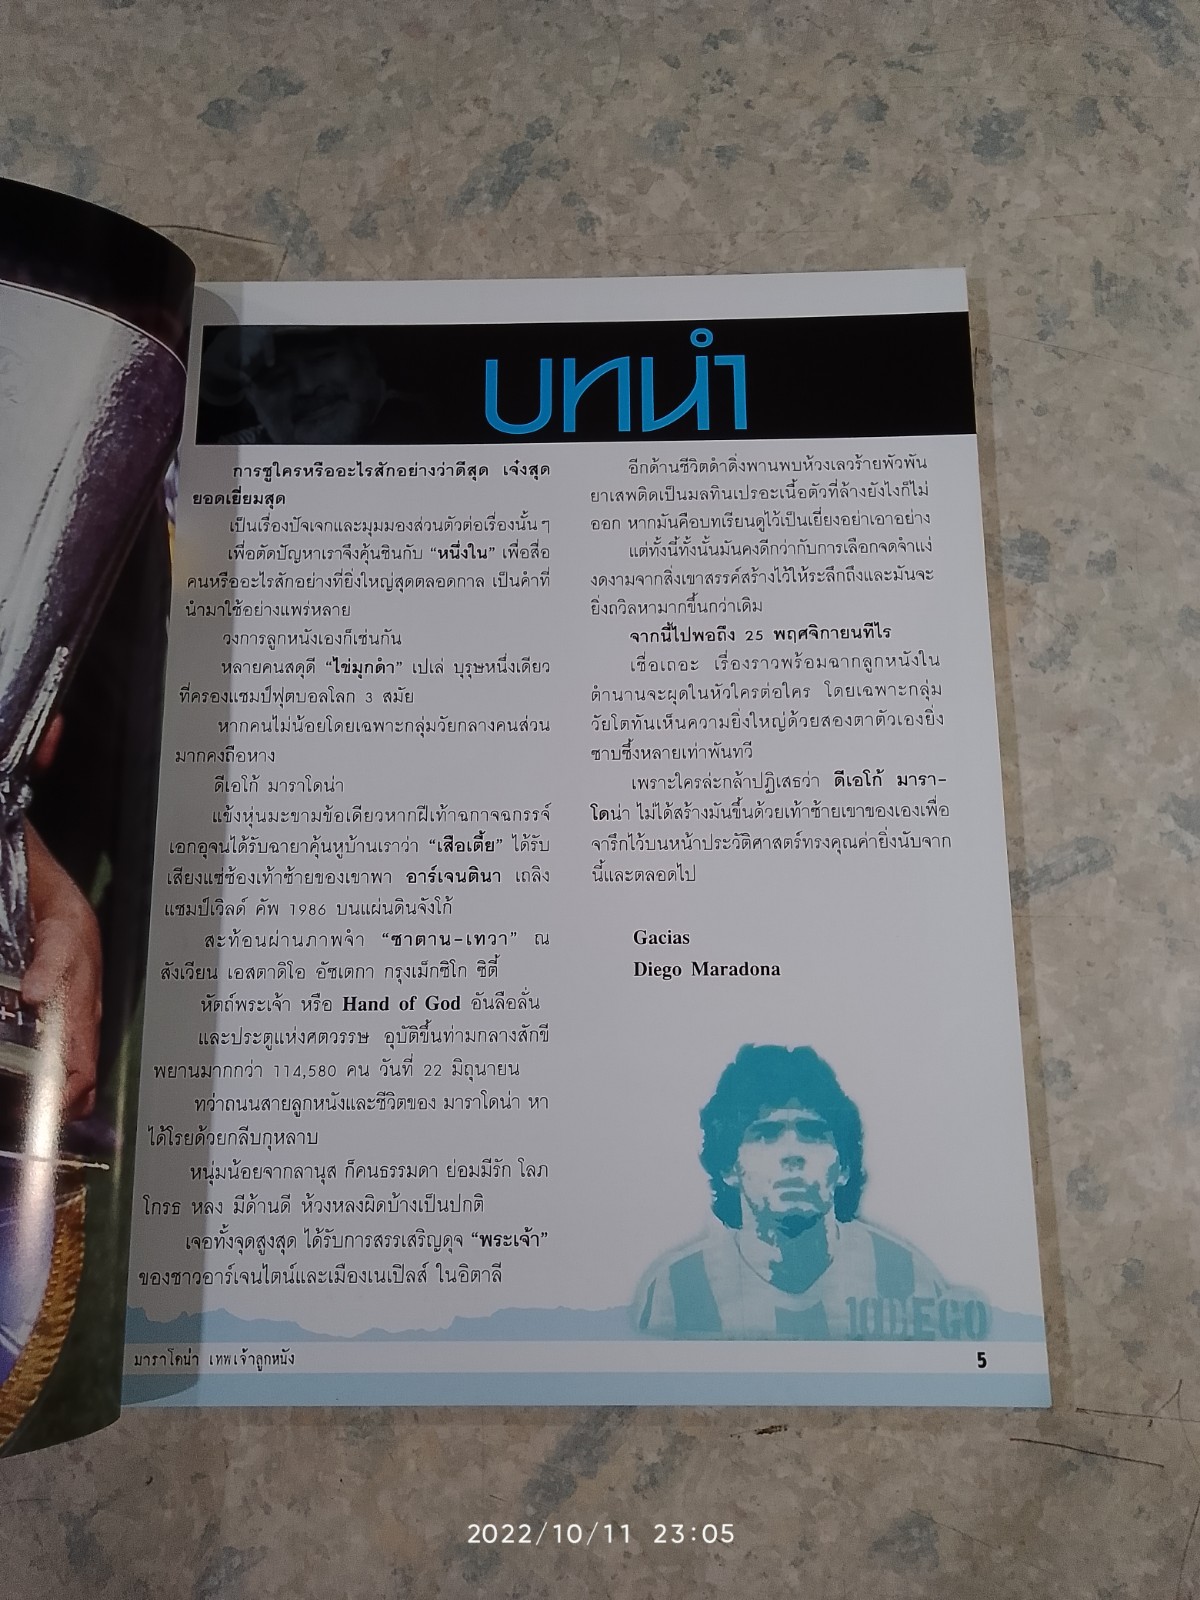 บทนำ
การชูใครหรืออะไรสักอย่างว่าดีสุด เจ๋งสุด
ยอดเยี่ยมสุด
เป็นเรื่องปัจเจกและมุมมองส่วนตัวต่อเรื่องนั้นๆ
เพื่อตัดปัญหาเราจึงคุ้นชินกับ “หนึ่งใน” เพื่อสื่อ
คนหรืออะไรสักอย่างที่ยิ่งใหญ่สุดตลอดกาล เป็นคำที่
นำมาใช้อย่างแพร่หลาย
วงการลูกหนังเองก็เช่นกัน
หลายคนสดุดี “ไข่มุกดำ” เปเล่ บุรุษหนึ่งเดียว
ที่ครองแชมป์ฟุตบอลโลก 3 สมัย
หากคนไม่น้อยโดยเฉพาะกลุ่มวัยกลางคนส่วน
มากคงถือหาง
ดีเอโก้ มาราโดน่า
แข้งหุ่นมะขามข้อเดียวหากฝีเท้าฉกาจฉกรรจ์
เอกอุจนได้รับฉายาคุ้นหูบ้านเราว่า “เสือเตี้ย” ได้รับ
เสียงแซ่ซ้องเท้าซ้ายของเขาพา อาร์เจนตินา เถลิง
แชมป์เวิลด์ คัพ 1986 บนแผ่นดินจังโก้
สะท้อนผ่านภาพจำ “ซาตาน-เทวา” ณ
สังเวียน เอสตาดิโอ อัซเตกา กรุงเม็กซิโก ซิตี้
หัตถ์พระเจ้า หรือ Hand of God อันลือลั่น
และประตูแห่งศตวรรษ อุบัติขึ้นท่ามกลางสักขี
พยานมากกว่า 114,580 คน วันที่ 22 มิถุนายน
ทว่าถนนสายลูกหนังและชีวิตของ มาราโดน่า หา
ได้โรยด้วยกลีบกุหลาบ
หนุ่มน้อยจากลานุส ก็คนธรรมดา ย่อมมีรัก โลภ
โกรธ หลง มีด้านดี ห้วงหลงผิดบ้างเป็นปกติ
เจอทั้งจุดสูงสุด ได้รับการสรรเสริญดุจ “พระเจ้า”
ของชาวอาร์เจนไตน์และเมืองเนเปิลส์ ในอิตาลี
อีกด้านชีวิตดำดิ่งพานพบห้วงเลวร้ายพัวพัน
ยาเสพติดเป็นมลทินเปรอะเนื้อตัวที่ล้างยังไงก็ไม่
ออก หากมันคือบทเรียนดูไว้เป็นเยี่ยงอย่าเอาอย่าง
แต่ทั้งนี้ทั้งนั้นมันคงดีกว่ากับการเลือกจดจำแง่
งดงามจากสิ่งเขาสรรค์สร้างไว้ให้ระลึกถึงและมันจะ
ยิ่งถวิลหามากขึ้นกว่าเดิม
จากนี้ไปพอถึง 25 พฤศจิกายนทีไร
เชื่อเถอะ เรื่องราวพร้อมฉากลูกหนังใน
ตำนานจะผุดในหัวใครต่อใคร โดยเฉพาะกลุ่ม
วัยโตทันเห็นความยิ่งใหญ่ด้วยสองตาตัวเองยิ่ง
ซาบซึ้งหลายเท่าพันทวี
เพราะใครล่ะกล้าปฏิเสธว่า ดีเอโก้ มารา-
โดน่า ไม่ได้สร้างมันขึ้นด้วยเท้าซ้ายเขาของเองเพื่อ
จารึกไว้บนหน้าประวัติศาสตร์ทรงคุณค่ายิ่งนับจาก
นี้และตลอดไป
Gacias
Diego Maradona
10DIEGO
มาราโดน่า เทพเจ้าลูกหนัง
5
2022/10/11 23:05